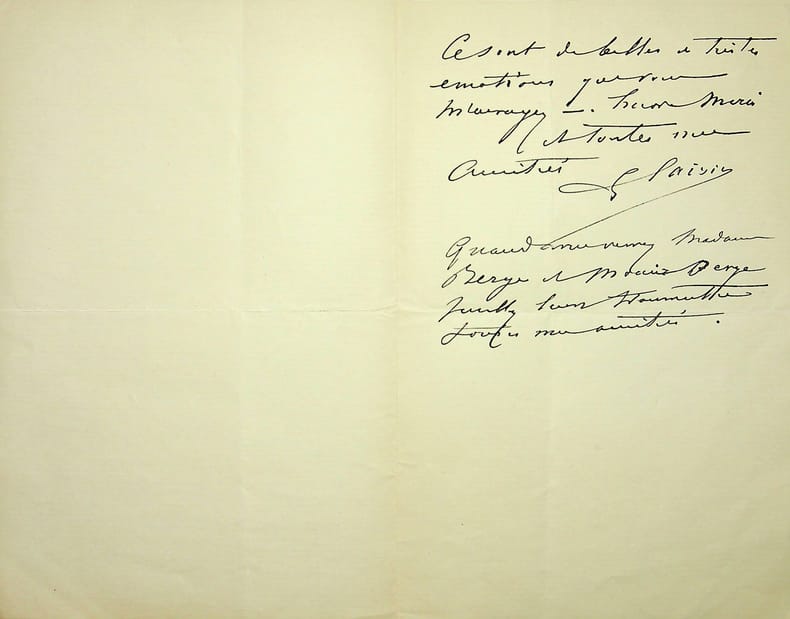 Ce sont de belles et tristes
emotions que vous
m'envoyez —. Encore Merci
et toutes mes
Amitiés G Clairin
Quand vous verrez Madame
Berge et Berge
veuillez leur transmettre
toutes mes amitiés.